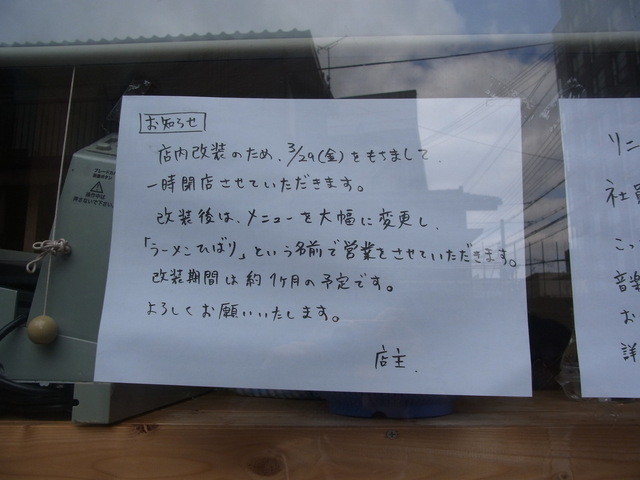 お知らせ
店内改装のため、3/29(金)をもちまして、
一時閉店させていただきます。
改装後は、メニューを大幅に変更し、
「ラーメンひばり」という名前で営業をさせていただきます。
改装期間は約1ヶ月の予定です。
よろしくお願いいたします。
店主.
リニ
社員
こっ
音楽
お
詳